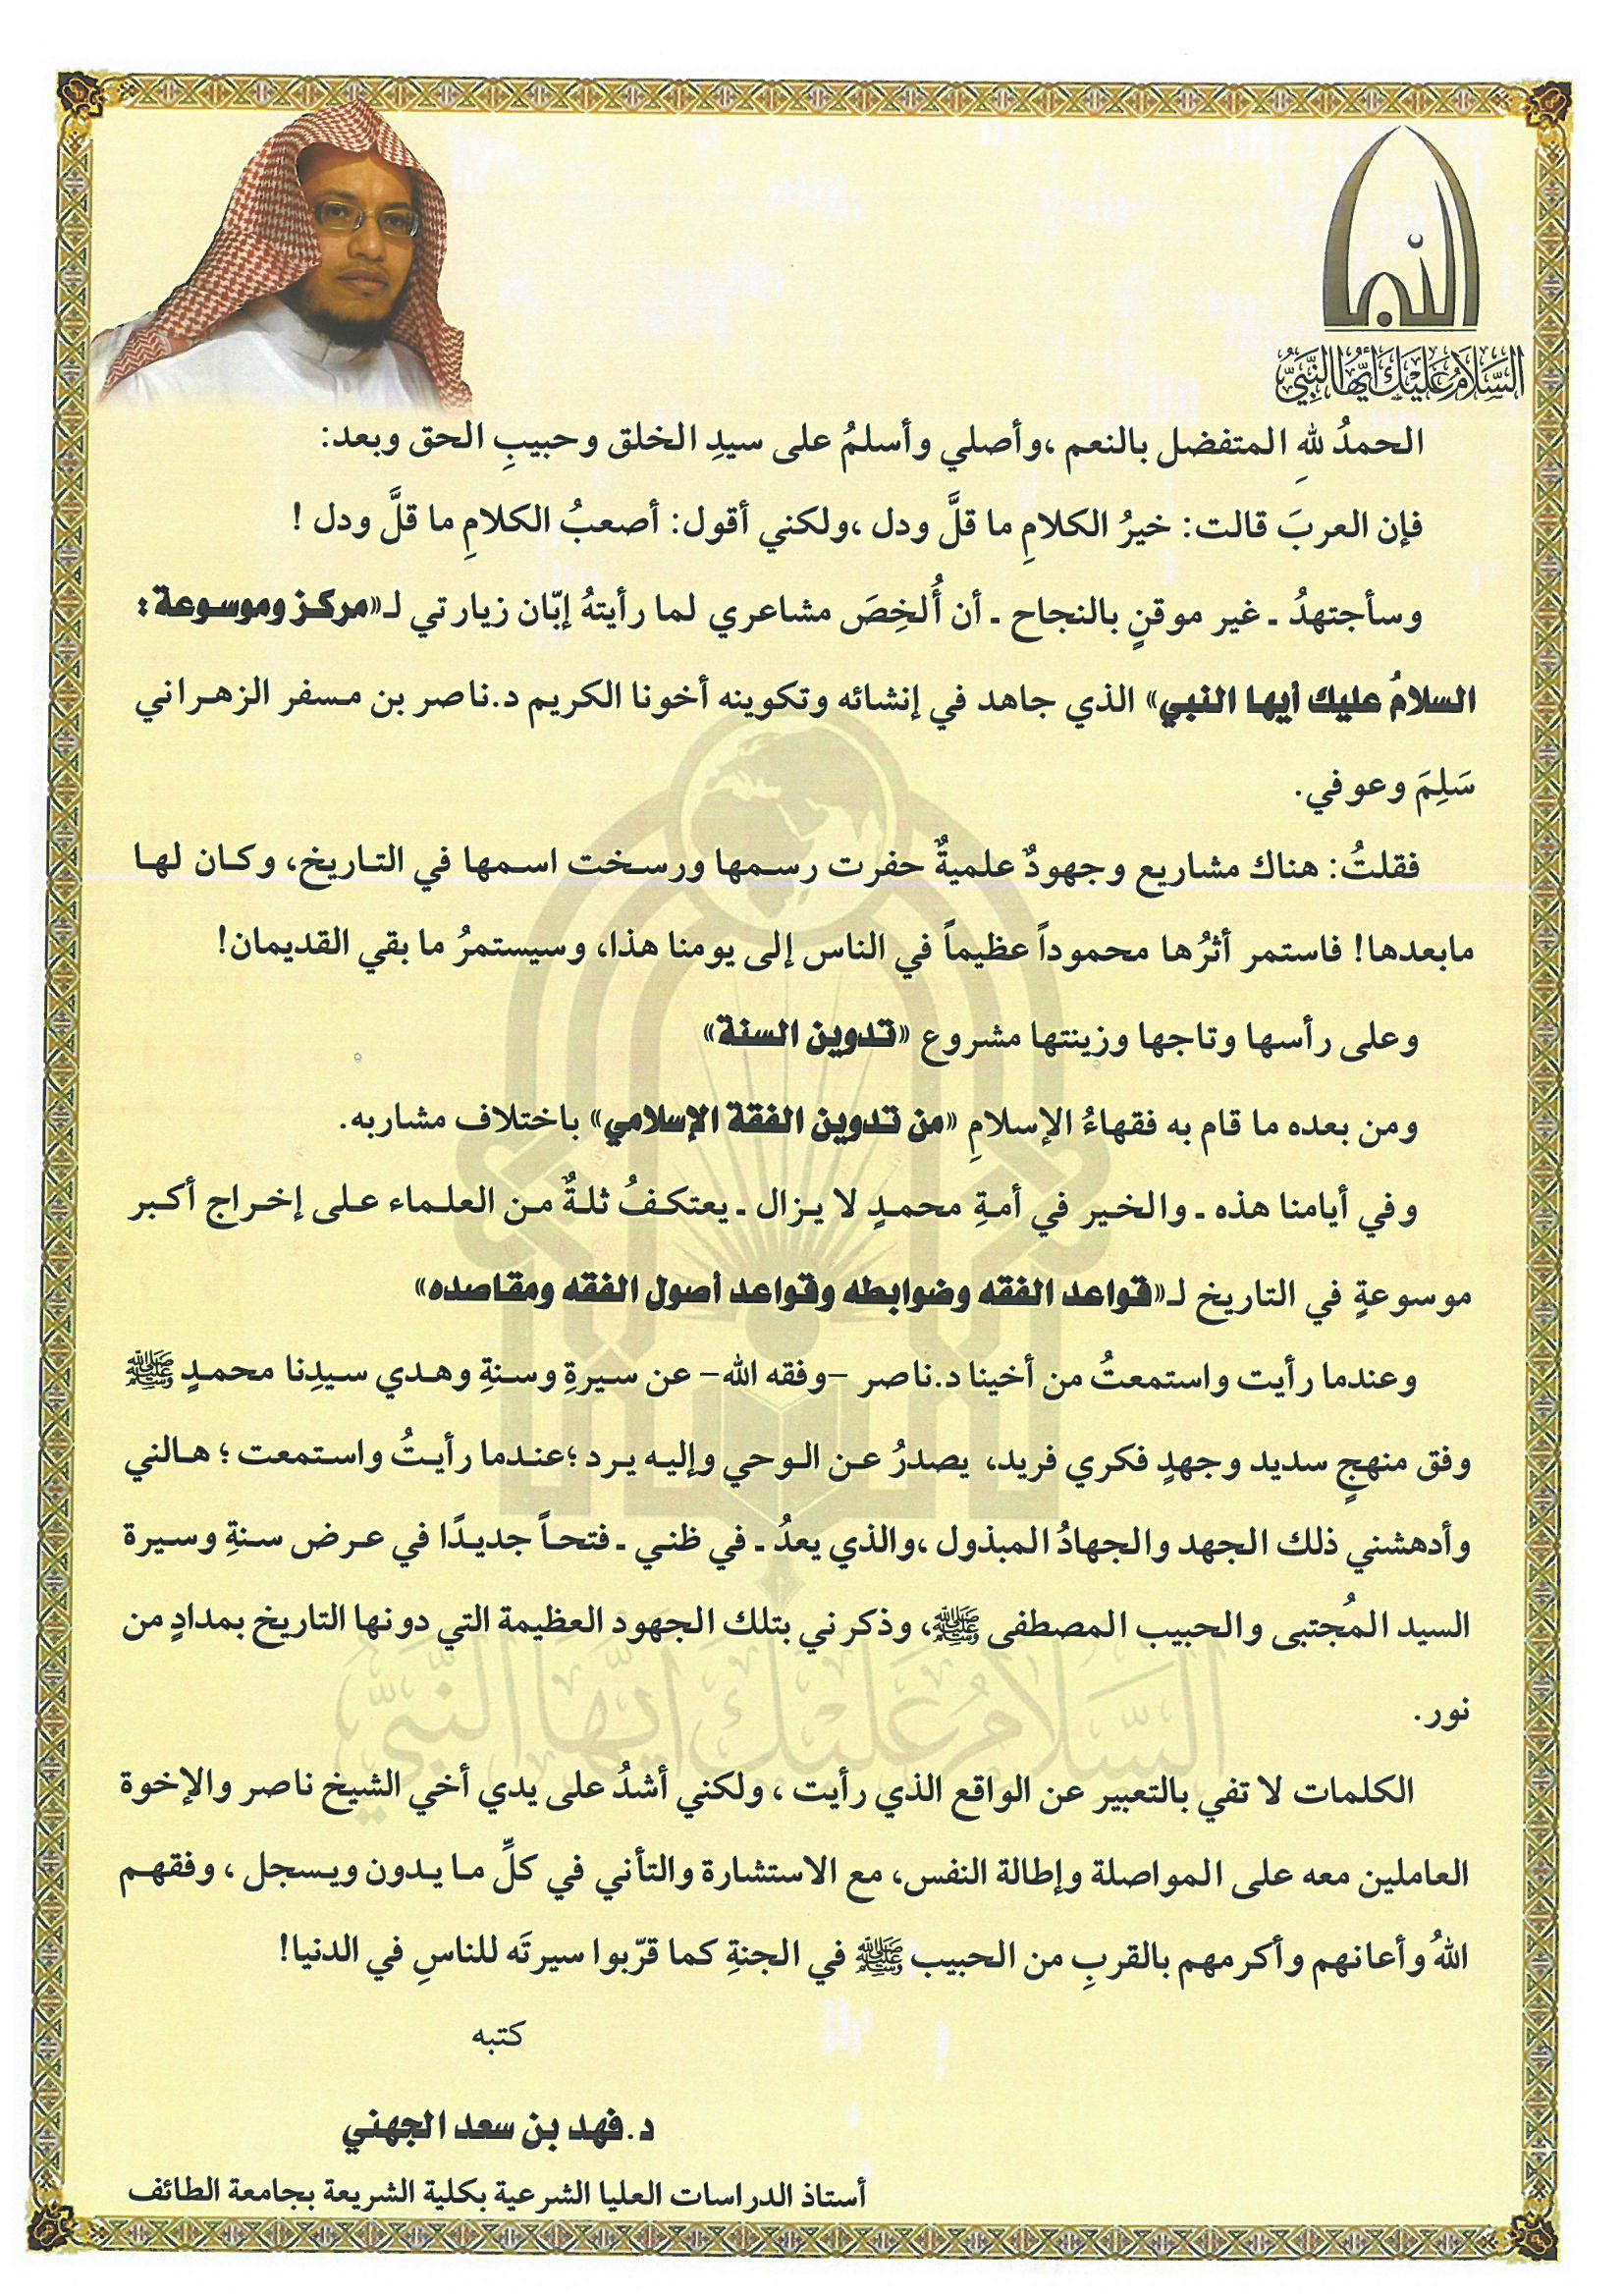 السَّلَامُ عَلَيْكَ أَيُّهَا النَّبِيُّ
الحمدُ للهِ المتفضل بالنعم ،وأصلي وأسلمُ على سيدِ الخلق وحبيبِ الحق وبعد:
فإن العربَ قالت: خيرُ الكلامِ ما قلَّ ودل ،ولكني أقول: أصعبُ الكلامِ ما قلَّ ودل !
وسأجتهدُ ـ غير موقنٍ بالنجاح ـ أن أُلخِصَ مشاعري لما رأيتهُ إبّان زيارتي لـ«مركز وموسوعة :
السلامُ عليك أيها النبي» الذي جاهد في إنشائه وتكوينه أخونا الكريم د.ناصر بن مسفر الزهراني
سَلِمَ وعوفي.
فقلتُ: هناك مشاريع وجهودٌ علميةٌ حفرت رسمها ورسخت اسمها في التاريخ، وكان لها
مابعدها! فاستمر أثرُها محموداً عظيماً في الناس إلى يومنا هذا، وسيستمرُ ما بقي القديمان!
وعلى رأسها وتاجها وزينتها مشروع «تدوين السنة»
ومن بعده ما قام به فقهاءُ الإسلامِ «من تدوين الفقة الإسلامي» باختلاف مشاربه.
وفي أيامنا هذه ـ والخير في أمةِ محمدٍ لا يزال ـ يعتكفُ ثلةٌ من العلماء على إخراج أكبر
موسوعةٍ في التاريخ لـ«قواعد الفقه وضوابطه وقواعد أصول الفقه ومقاصده»
وعندما رأيت واستمعتُ من أخينا د.ناصر -وفقه الله- عن سيرةِ وسنةِ وهدي سيدِنا محمدٍ ﷺ
وفق منهجٍ سديد وجهدٍ فكري فريد، يصدرُ عن الوحي وإليه يرد ؛عندما رأيتُ واستمعت ؛ هالني
وأدهشني ذلك الجهد والجهادُ المبذول ،والذي يعدُ ـ في ظني ـ فتحاً جديدًا في عرض سنةِ وسيرة
السيد المُجتبى والحبيب المصطفى ﷺ، وذكرني بتلك الجهود العظيمة التي دونها التاريخ بمدادٍ من
نور.
الكلمات لا تفي بالتعبير عن الواقع الذي رأيت ، ولكني أشدُ على يدي أخي الشيخ ناصر والإخوة
العاملين معه على المواصلة وإطالة النفس، مع الاستشارة والتأني في كلِّ ما يدون ويسجل ، وفقهم
اللهُ وأعانهم وأكرمهم بالقربِ من الحبيب ﷺ في الجنةِ كما قرّبوا سيرتَه للناسِ في الدنيا!
كتبه
د.فهد بن سعد الجهني
أستاذ الدراسات العليا الشرعية بكلية الشريعة بجامعة الطائف